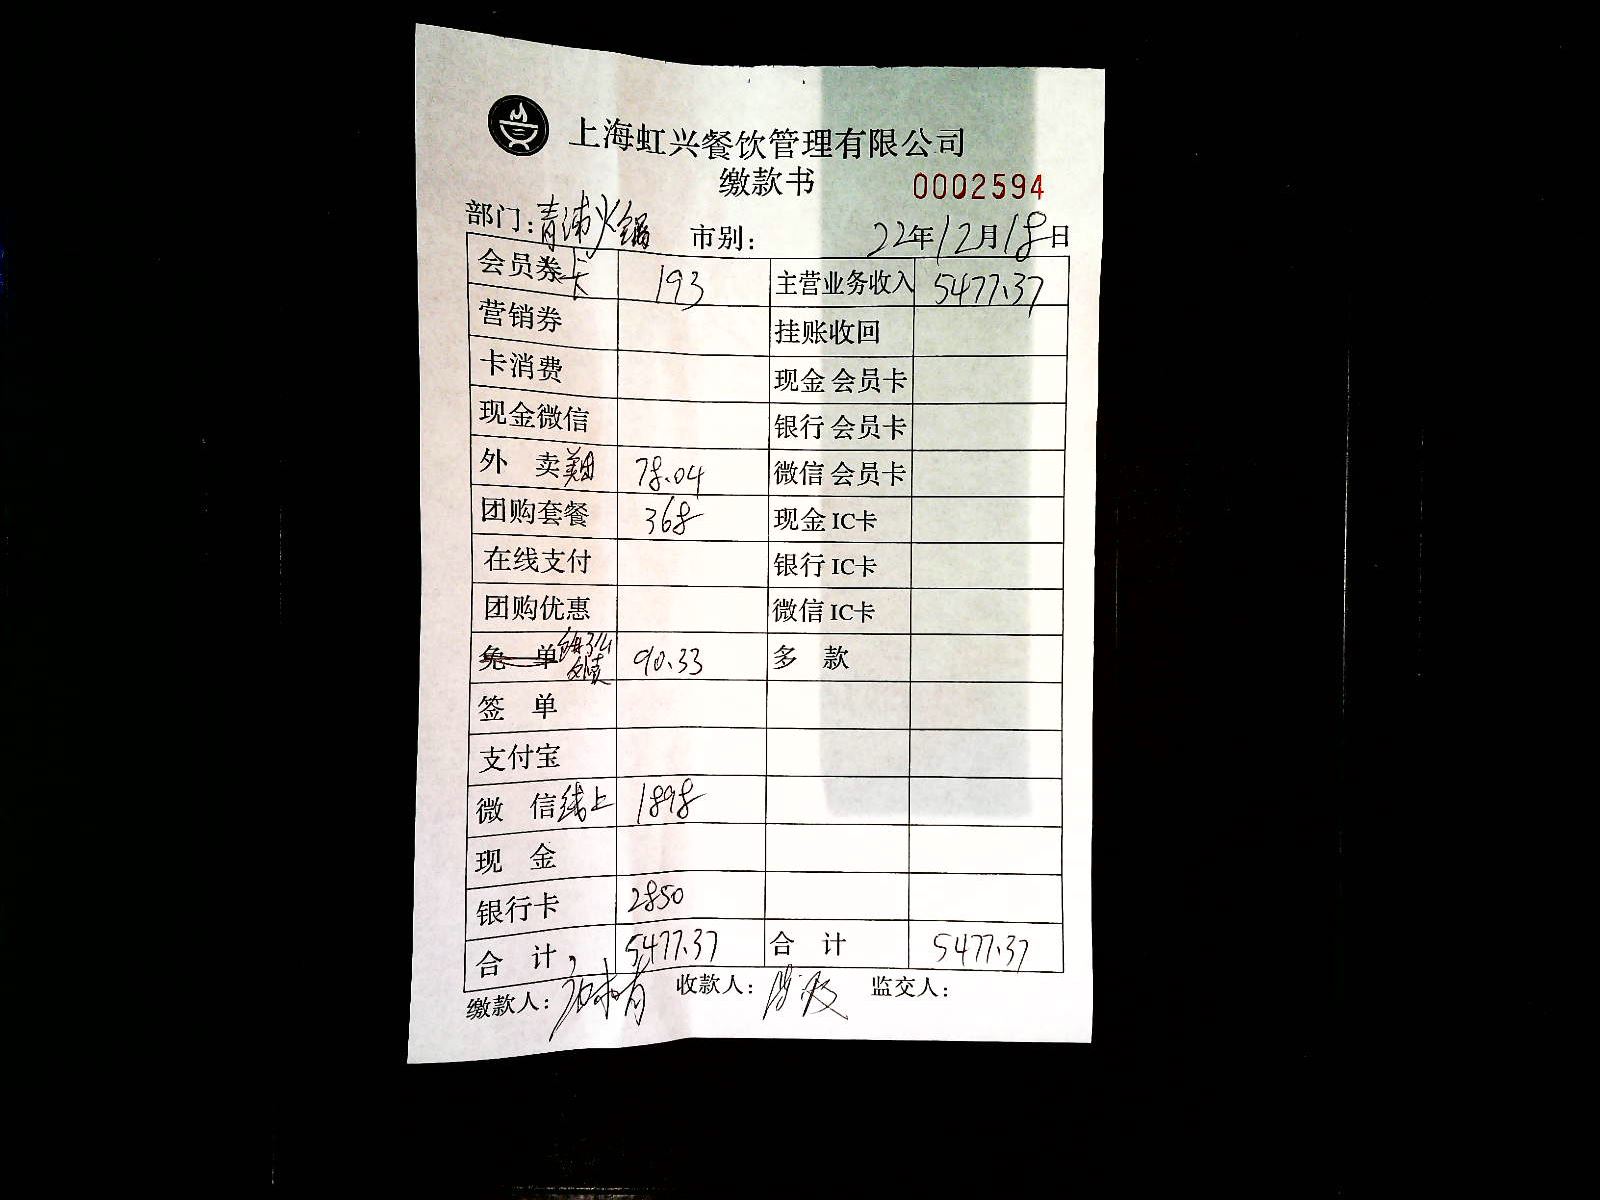 上海虹兴餐饮管理有限公司
缴款书 0002594
部门：青浦火锅 市别： 22年12月18日
会员券卡 193 主营业务收入 5477.37
营销券 挂账收回
卡消费 现金 会员卡
现金微信 银行 会员卡
外 卖 美团 78.04 微信 会员卡
团购套餐 368 现金 IC卡
在线支付 银行 IC卡
团购优惠 微信 IC卡
免 单 90.33 多 款
签 单
支付宝
微 信 线上 1898
现 金
银行卡 2850
合 计 5477.37 合 计 5477.37
缴款人： 收款人： 监交人：